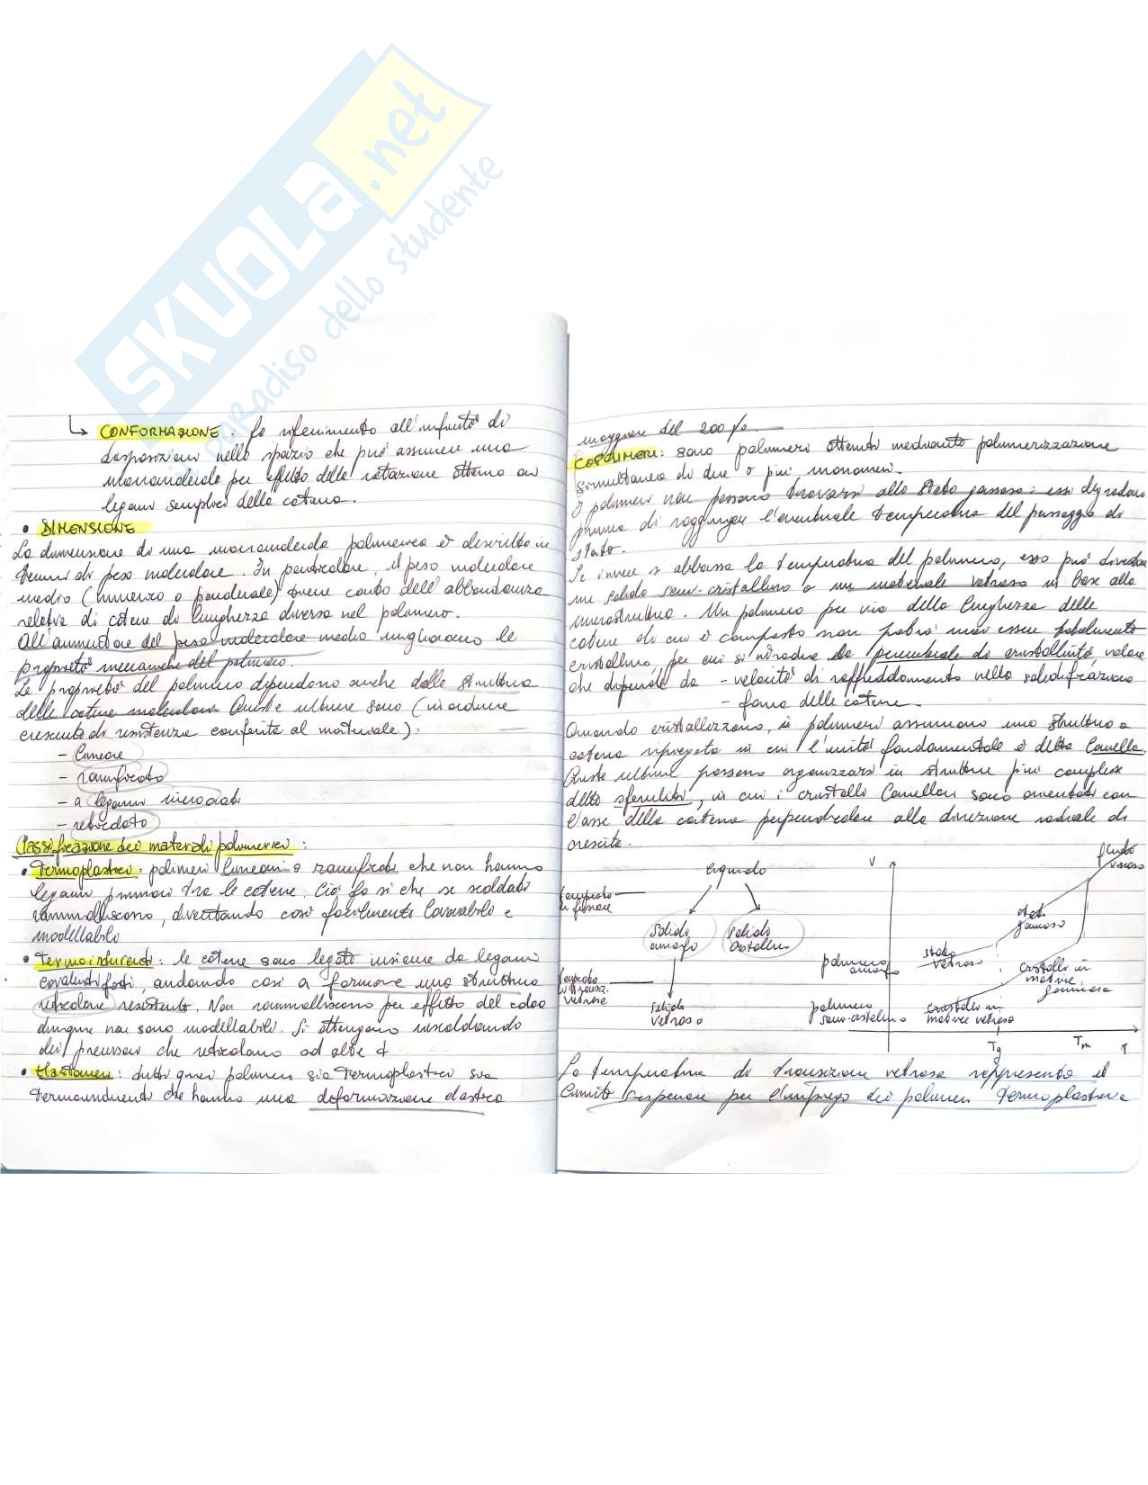 SKUOLA.net
paradiso dello studente
↳ CONFORMAZIONE. fa riferimento all'infinità di
disposizioni nello spazio che può assumere una
macromolecola per effetto della rotazione attorno ai
legami semplici della catena.
• DIMENSIONE
La dimensione di una macromolecola polimerica è descritta in
termini di peso molecolare. In particolare, il peso molecolare
medio (numerico o ponderale) tiene conto dell'abbondanza
relativa di catene di lunghezza diversa nel polimero.
All'aumentare del peso molecolare medio migliorano le
proprietà meccaniche del polimero.
Le proprietà del polimero dipendono anche dalla struttura
delle catene molecolari. Queste ultime sono (in ordine
crescente di resistenza conferita al materiale):
- lineare
- ramificata
- a legami incrociati
- reticolato
Classificazione dei materiali polimerici:
• Termoplastici: polimeri lineari o ramificati che non hanno
legami primari tra le catene. Ciò fa sì che se scaldati
rammolliscono, diventando così facilmente lavorabili e
modellabili
• Termoindurenti: le catene sono legate insieme da legami
covalenti forti, andando così a formare una struttura
reticolare resistente. Non rammolliscono per effetto del calore
dunque non sono modellabili. Si ottengono riscaldando
dei precursori che reticolano ad alte t
• Elastomeri: tutti quei polimeri sia termoplastici sia
termoindurenti che hanno una deformazione elastica
maggiore del 200%
COPOLIMERI: sono polimeri ottenuti mediante polimerizzazione
simultanea di due o più monomeri.
I polimeri non possono trovarsi allo stato gassoso: essi degradano
prima di raggiungere l'eventuale temperatura del passaggio di
stato.
Se invece si abbassa la temperatura del polimero, esso può diventare
un solido semi-cristallino o un materiale vetroso in base alla
microstruttura. Un polimero per via della lunghezza delle
catene di cui è composto non potrà mai essere totalmente
cristallino, per cui si introduce la percentuale di cristallinità, valore
che dipende da - velocità di raffreddamento nella solidificazione
- forma delle catene.
Quando cristallizzano, i polimeri assumono una struttura a
catena ripiegata in cui l'unità fondamentale è detta lamella.
Queste ultime possono organizzarsi in strutture più complesse
dette sferuliti, in cui i cristalli lamellari sono orientati con
l'asse della catena perpendicolare alla direzione radiale di
crescita.
liquido
temperatura di fusione
solido amorfo
solido cristallino
temperatura di transiz. vetrosa
solido vetroso
V
fluido viscoso
stato gommoso
stato vetroso
polimero amorfo
cristalli in matrice gommosa
polimero semi-cristallino
cristalli in matrice vetrosa
Tg
Tm
T
La temperatura di transizione vetrosa rappresenta il
limite superiore per l'impiego dei polimeri termoplastici e